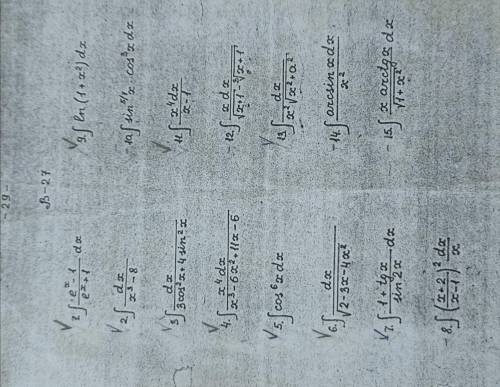 -29-
В-27
√1. ∫ (e^x - 1)/(e^x + 1) dx
√2. ∫ dx/(x³ - 8)
√3. ∫ dx/(3cos²x + 4sin²x)
√4. ∫ x⁴dx/(x³ - 6x² + 11x - 6)
√5. ∫ cos⁶x dx
√6. ∫ dx/√(2 - 3x - 4x²)
√7. ∫ (1 + tgx)/(sin2x) dx
-8. ∫ ((x+2)/(x-1))² dx/x
√9. ∫ ln(1 + x²)dx
-10. ∫ sin^(3/4)x · cos³x dx
√11. ∫ x⁴dx/(x-1)
-12. ∫ x dx/(√(x+1) - ∛(x+1))
√13. ∫ dx/(x²√(x² + a²))
-14. ∫ arcsinx dx/x²
-15. ∫ x arctgx dx/√(1 + x²)